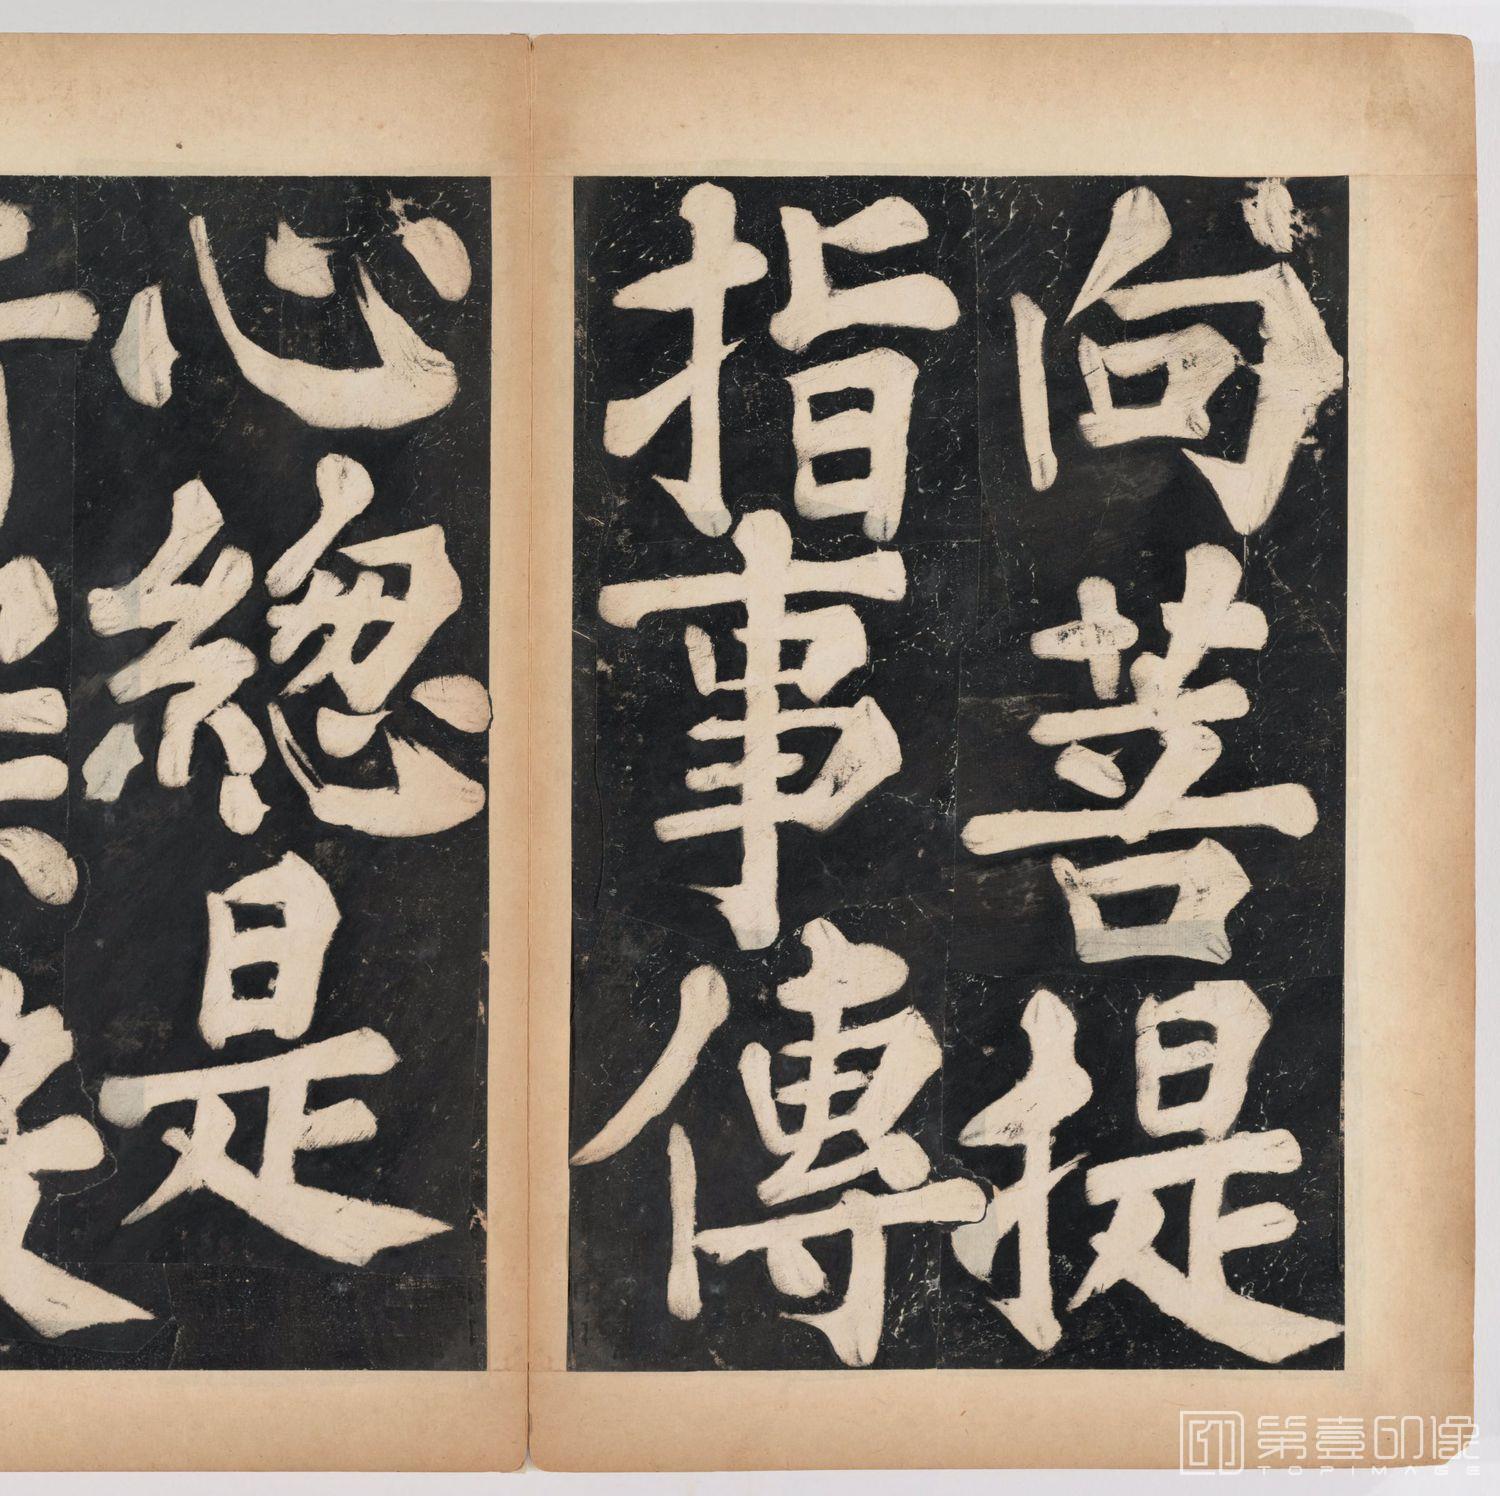 向菩提
指事傳
心總是
第壹印像
TOPIMAGE